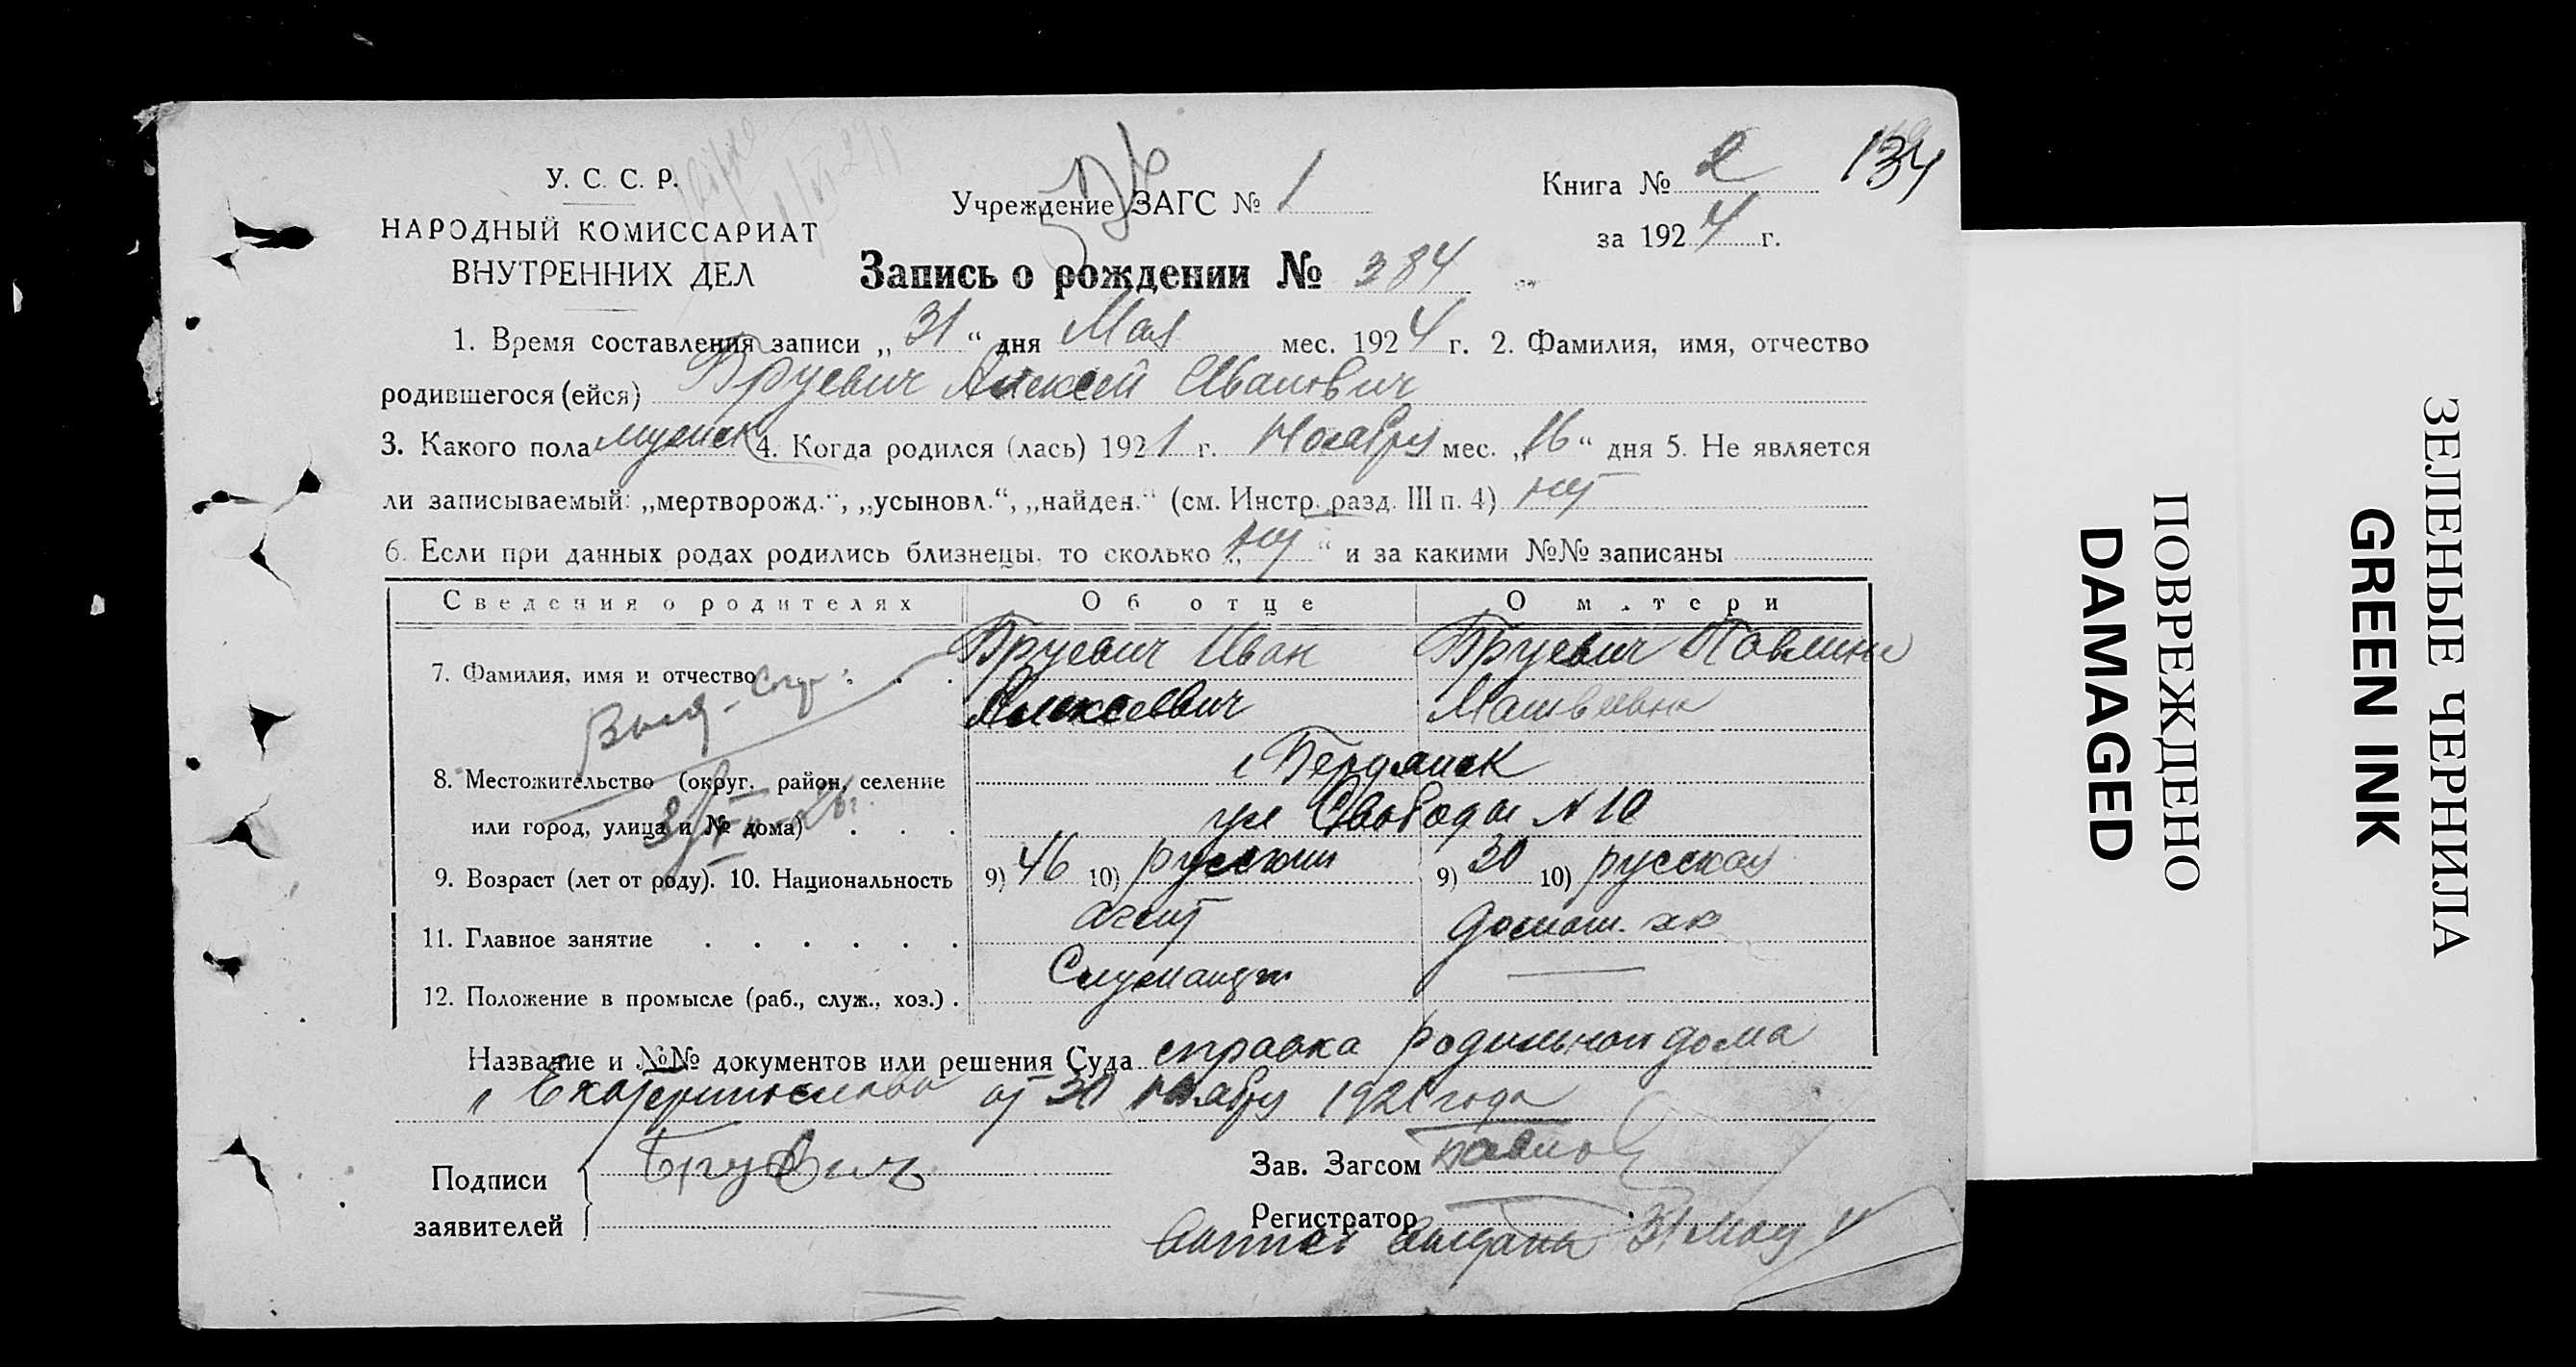 У. С. С. Р.
НАРОДНЫЙ КОМИССАРИАТ
ВНУТРЕННИХ ДЕЛ
Учреждение ЗАГС № 1
Книга № 2 134
за 1924 г.
Запись о рождении № 384
1. Время составления записи „31“ дня Мая мес. 1924 г. 2. Фамилия, имя, отчество
родившегося (ейся) Бруевич Алексей Иванович
3. Какого пола мужск 4. Когда родился (лась) 1921 г. Ноября мес. „16“ дня 5. Не является
ли записываемый: „мертворожд.“, „усыновл.“, „найден.“ (см. Инстр. разд. III п. 4) нет
6. Если при данных родах родились близнецы, то сколько „нет“ и за какими №№ записаны
Сведения о родителях Об отце О матери
7. Фамилия, имя и отчество Бруевич Иван Бруевич Павлина
Алексеевич Матвеевна
8. Местожительство (округ, район, селение г Бердянск
или город, улица и № дома) ул Свободы N 10
9. Возраст (лет от роду). 10. Национальность 9) 46 10) русский 9) 30 10) русская
11. Главное занятие агент домаш. хоз
12. Положение в промысле (раб., служ., хоз.) Служащий
Название и №№ документов или решения Суда справка родильной дома
г Екатеринослава от 30 ноября 1921 года
Подписи Бруевич Зав. Загсом
заявителей Регистратор
выдана 31 мая
ПОВРЕЖДЕНО
DAMAGED
ЗЕЛЕНЫЕ ЧЕРНИЛА
GREEN INK